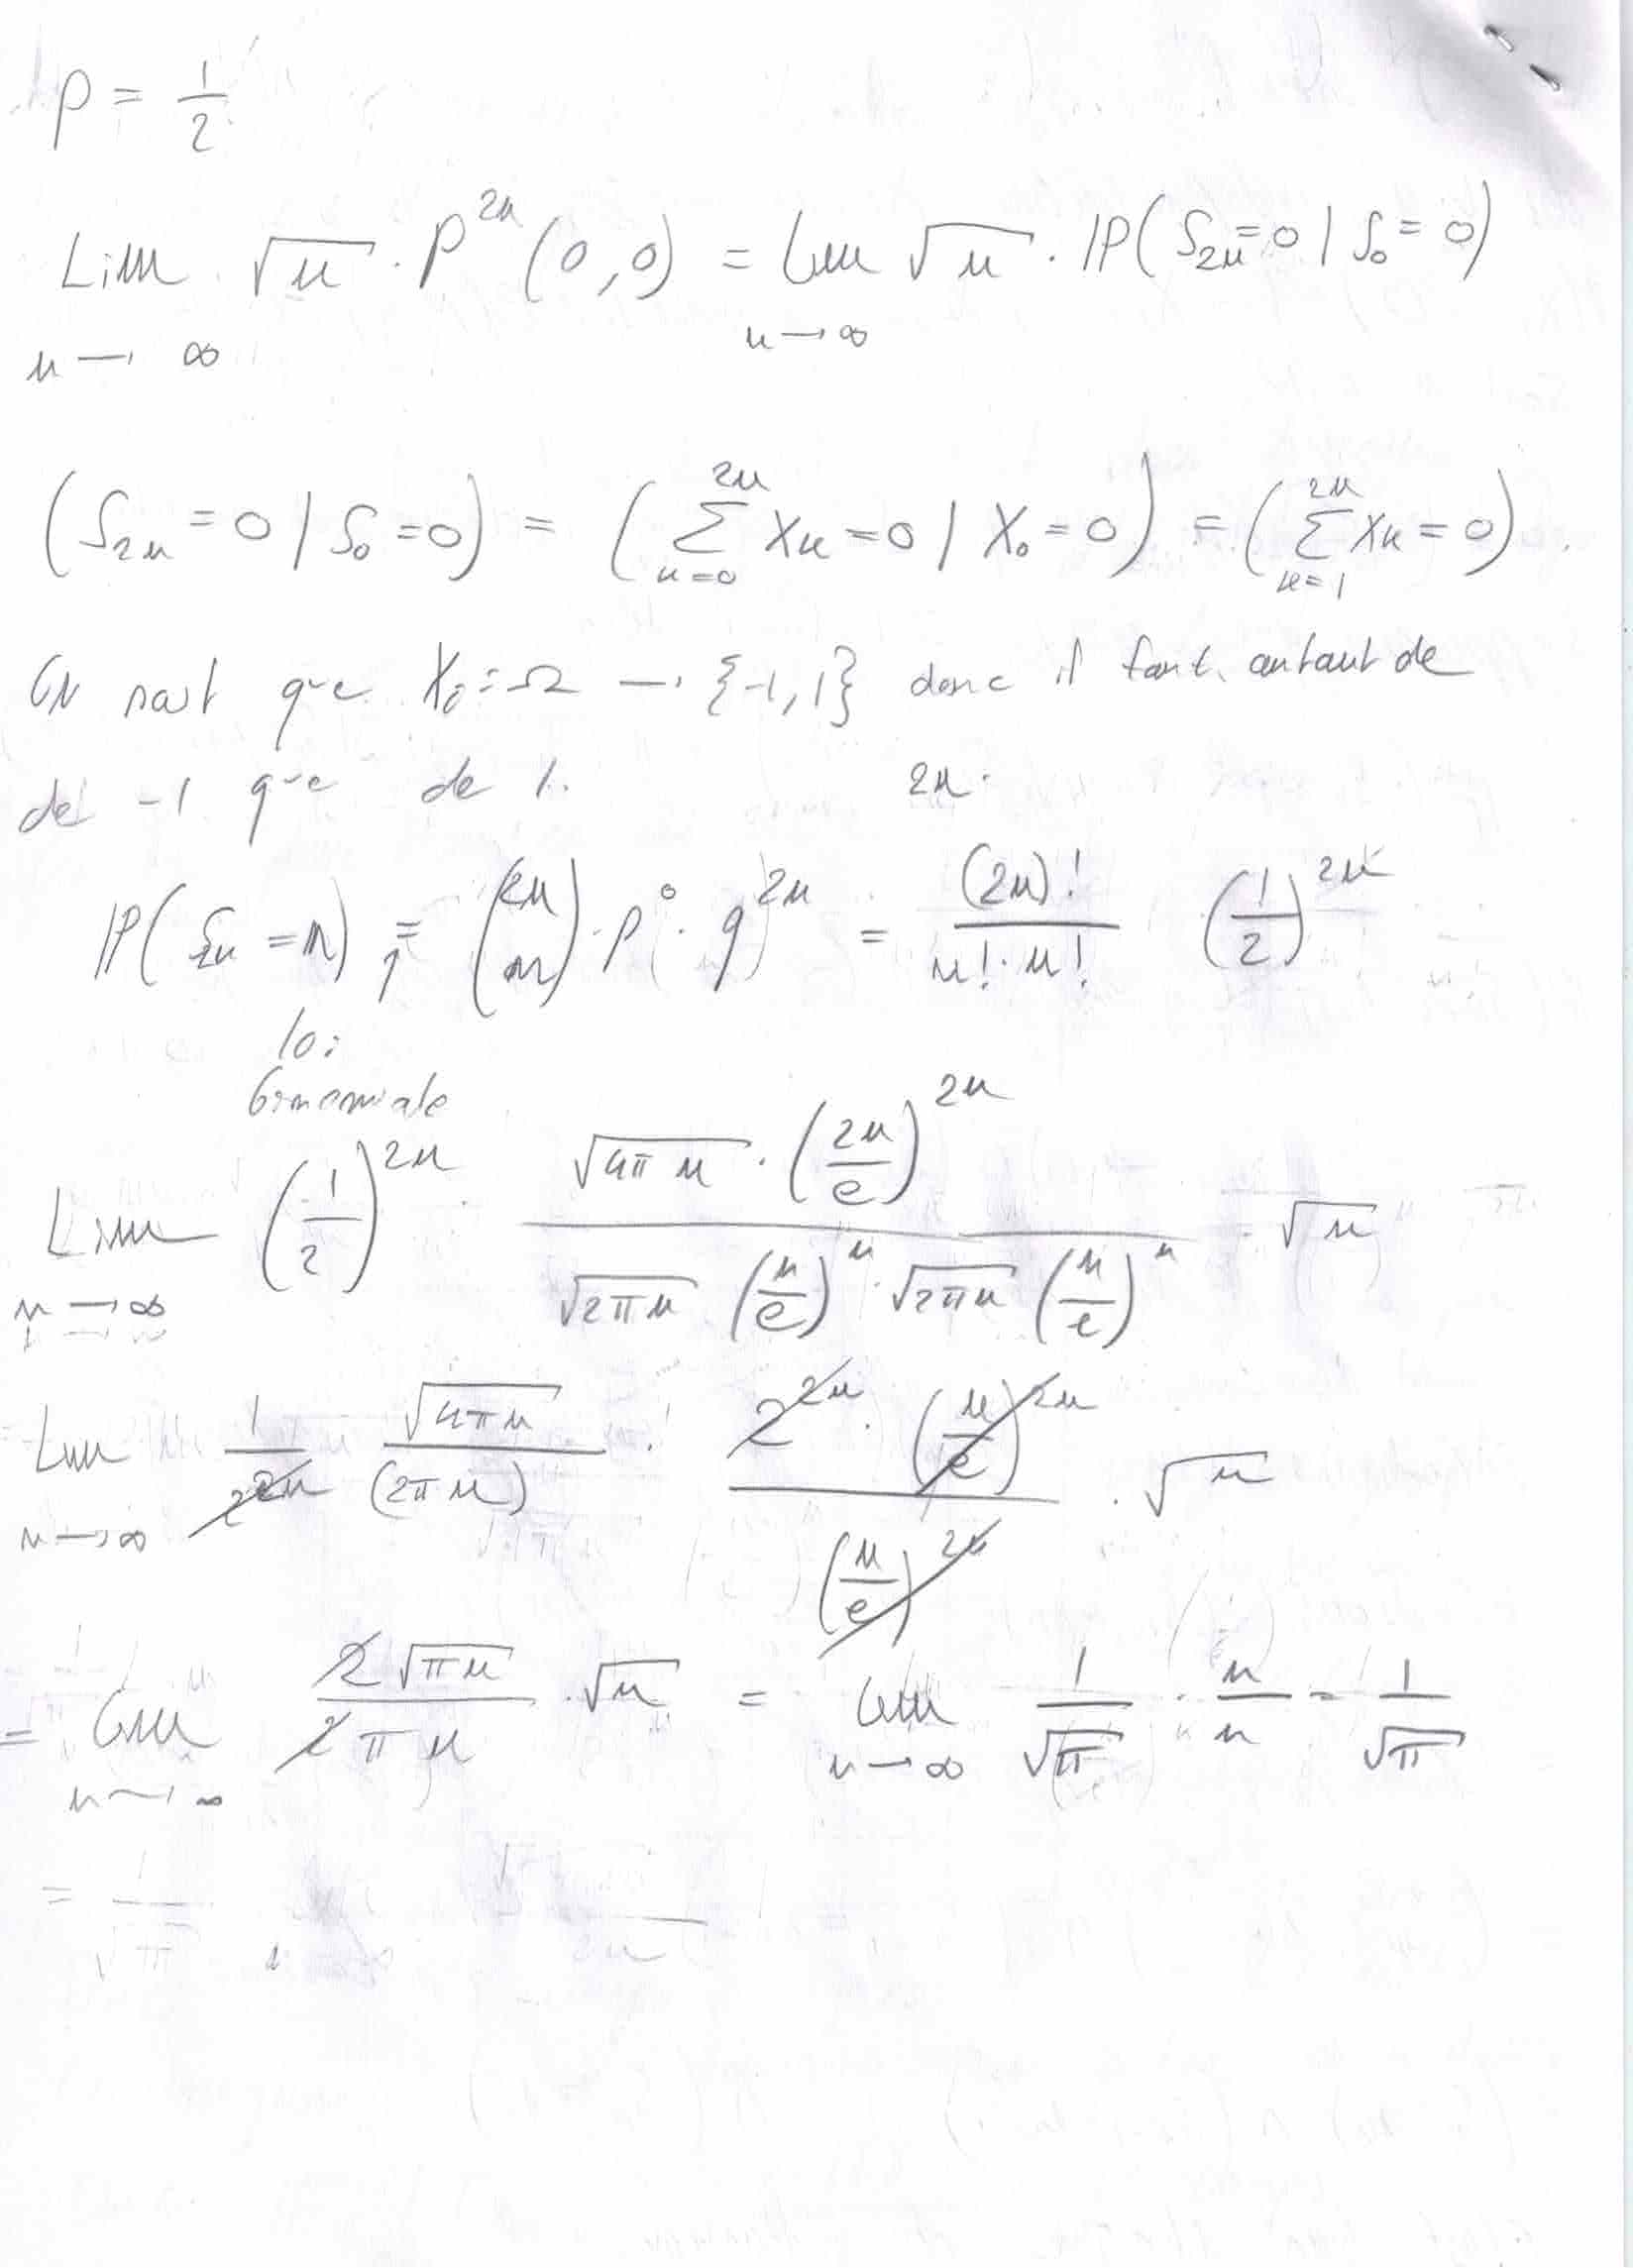 p = 1/2
Lim √n · P^{2n} (0,0) = Lim √n · IP(S_{2n} = 0 | S_0 = 0)
n → ∞ n → ∞
(S_{2n} = 0 | S_0 = 0) = (∑_{n=0}^{2n} X_n = 0 | X_0 = 0) = (∑_{n=1}^{2n} X_n = 0).
On sait que X_i : Ω → {-1, 1} donc il faut autant de
de -1 que de 1. 2n
IP( S_{2n} = n) = (2n n) · p^0 · q^{2n} = (2n)! / n! · n! (1/2)^{2n}
loi
binomiale
Lim (1/2)^{2n} · √4πn · (2n/e)^{2n} / √2πn (n/e)^n · √2πn (n/e)^n · √n
n → ∞
Lim 1/2^{2n} √4πn / (2πn) · 2^{2n} · (n/e)^{2n} / (n/e)^{2n} · √n
n → ∞
= Lim 2√πn / 2πn · √n = Lim 1/√π · n/n = 1/√π
n → ∞ n → ∞